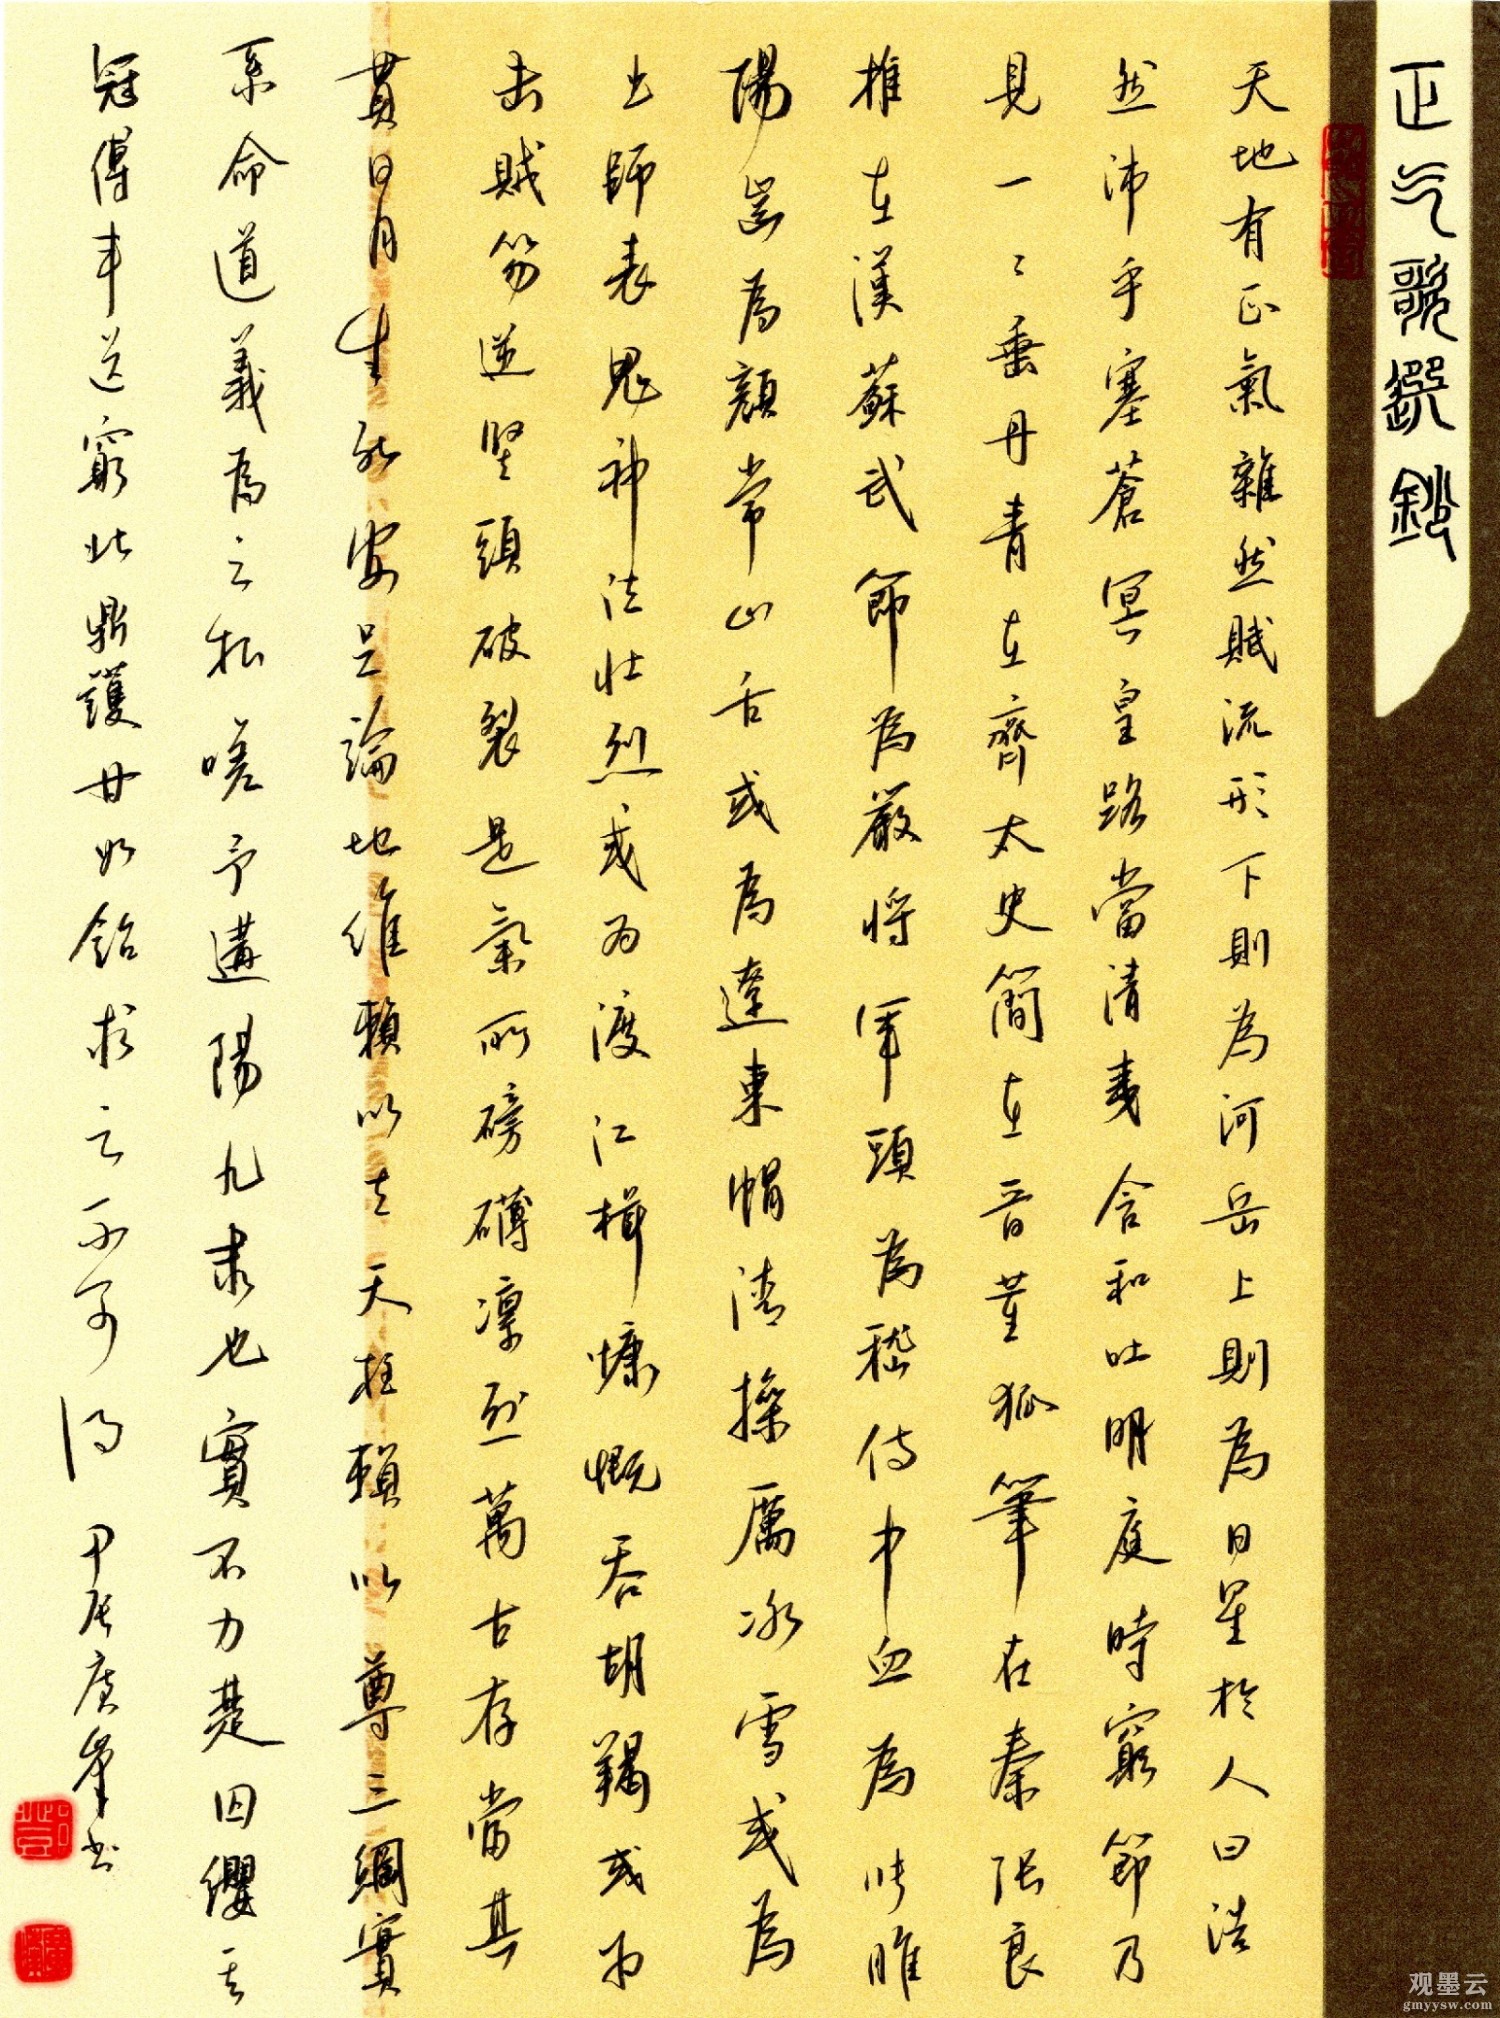 正气歌選鈔
天地有正氣雜然賦流形下則為河岳上則為日星於人曰浩
然沛乎塞蒼冥皇路當清夷含和吐明庭時窮節乃
見一〻垂丹青在齊太史簡在晉董狐筆在秦張良
椎在漢蘇武節為嚴將軍頭為嵇侍中血為張睢
陽齒為顏常山舌或為遼東帽清操厲冰雪或為
出師表鬼神泣壯烈或为渡江楫慷慨吞胡羯或为
击賊笏逆竖頭破裂是氣所磅礴凛烈萬古存當其
貫日月生死安足論地維賴以立天柱賴以尊三綱實
系命道義為之根嗟予遘陽九隶也實不力楚囚纓其
冠傳車送窮北鼎鑊甘如飴求之不可得甲辰
观墨云
gmyysw.com